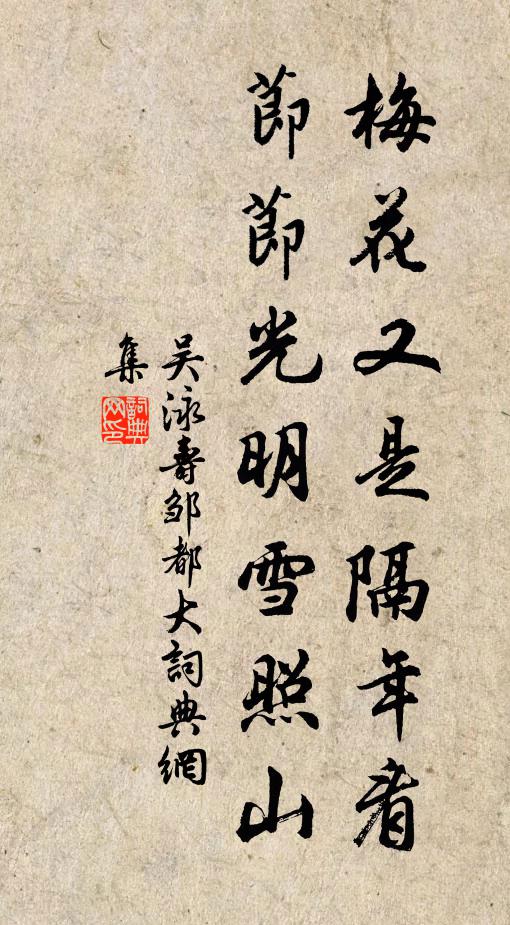 梅花又是隔年看
節節光明雪照山
吴泳壽邹都大詞典網
集
詞典網印